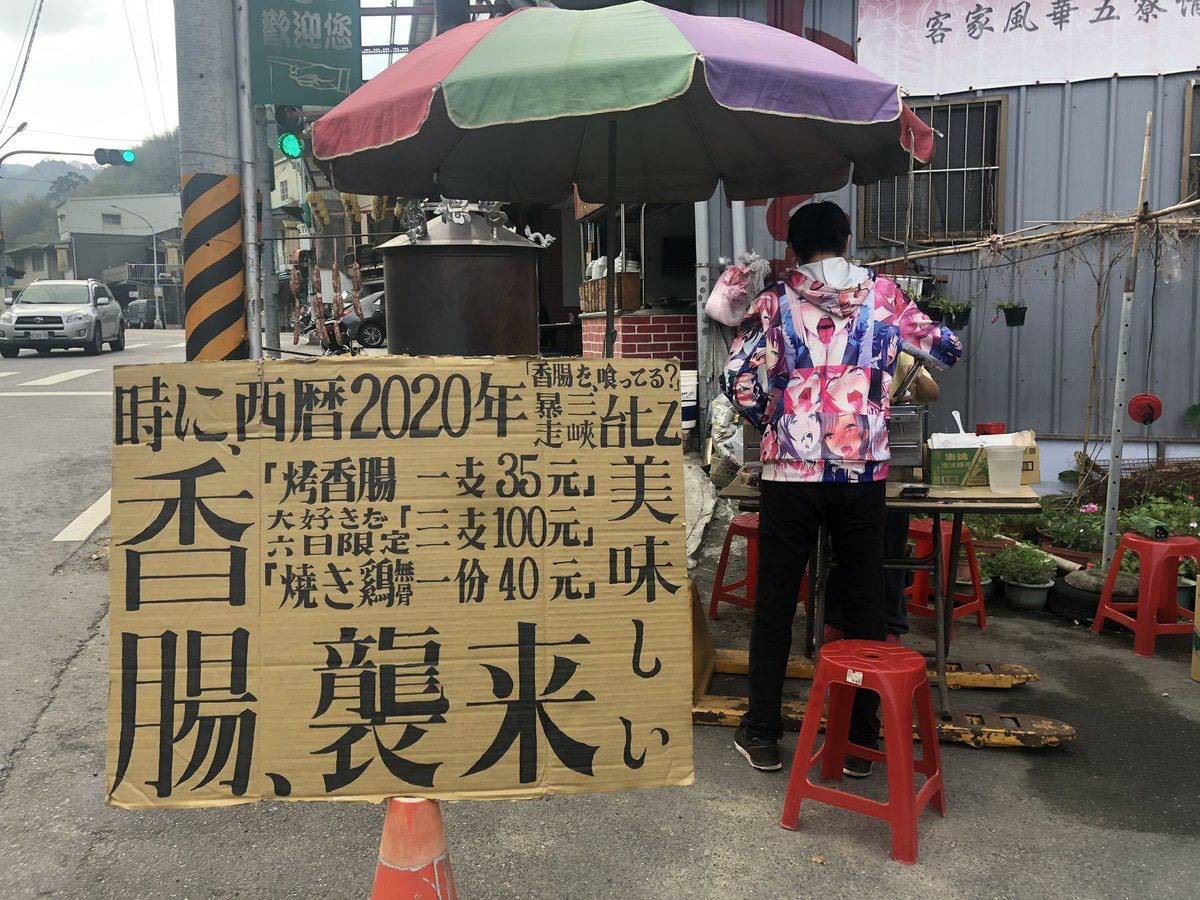 歡迎您
客家風華五寮情
時に、西暦2020年
「香腸を、喰ってる?」
暴走
三峽
「烤香腸 一支35元」
大好きだ「三支100元」
六日限定
「燒き鶏無骨一份40元」
香腸、襲来
美味しい